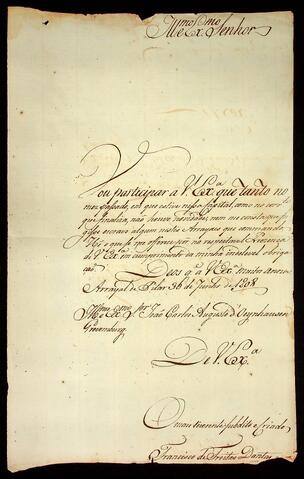 Illmo e Exmo Senhor
Vou participar a V. Exa. que tanto no
mez passado, em que estive nessa Capital, como no corr.te
que finaliza, não houve novidades, nem me consta que se
nestes Arrayaes que commando.
He o que se me offerece por na respeitavel Prezença
de V. Exa em cumprimento da minha indelevel obriga
cao.
Deos g.e a V. Exa muitos annos.
Arrayal do Pilar 30 de Junho de 1808
Illmo e Exmo Snr João Carlos Augusto d'Oeynhausen
Gravemburg.
De V. Exa.
O mais reverente subdito e Criado
Francisco de Freitas Dantas